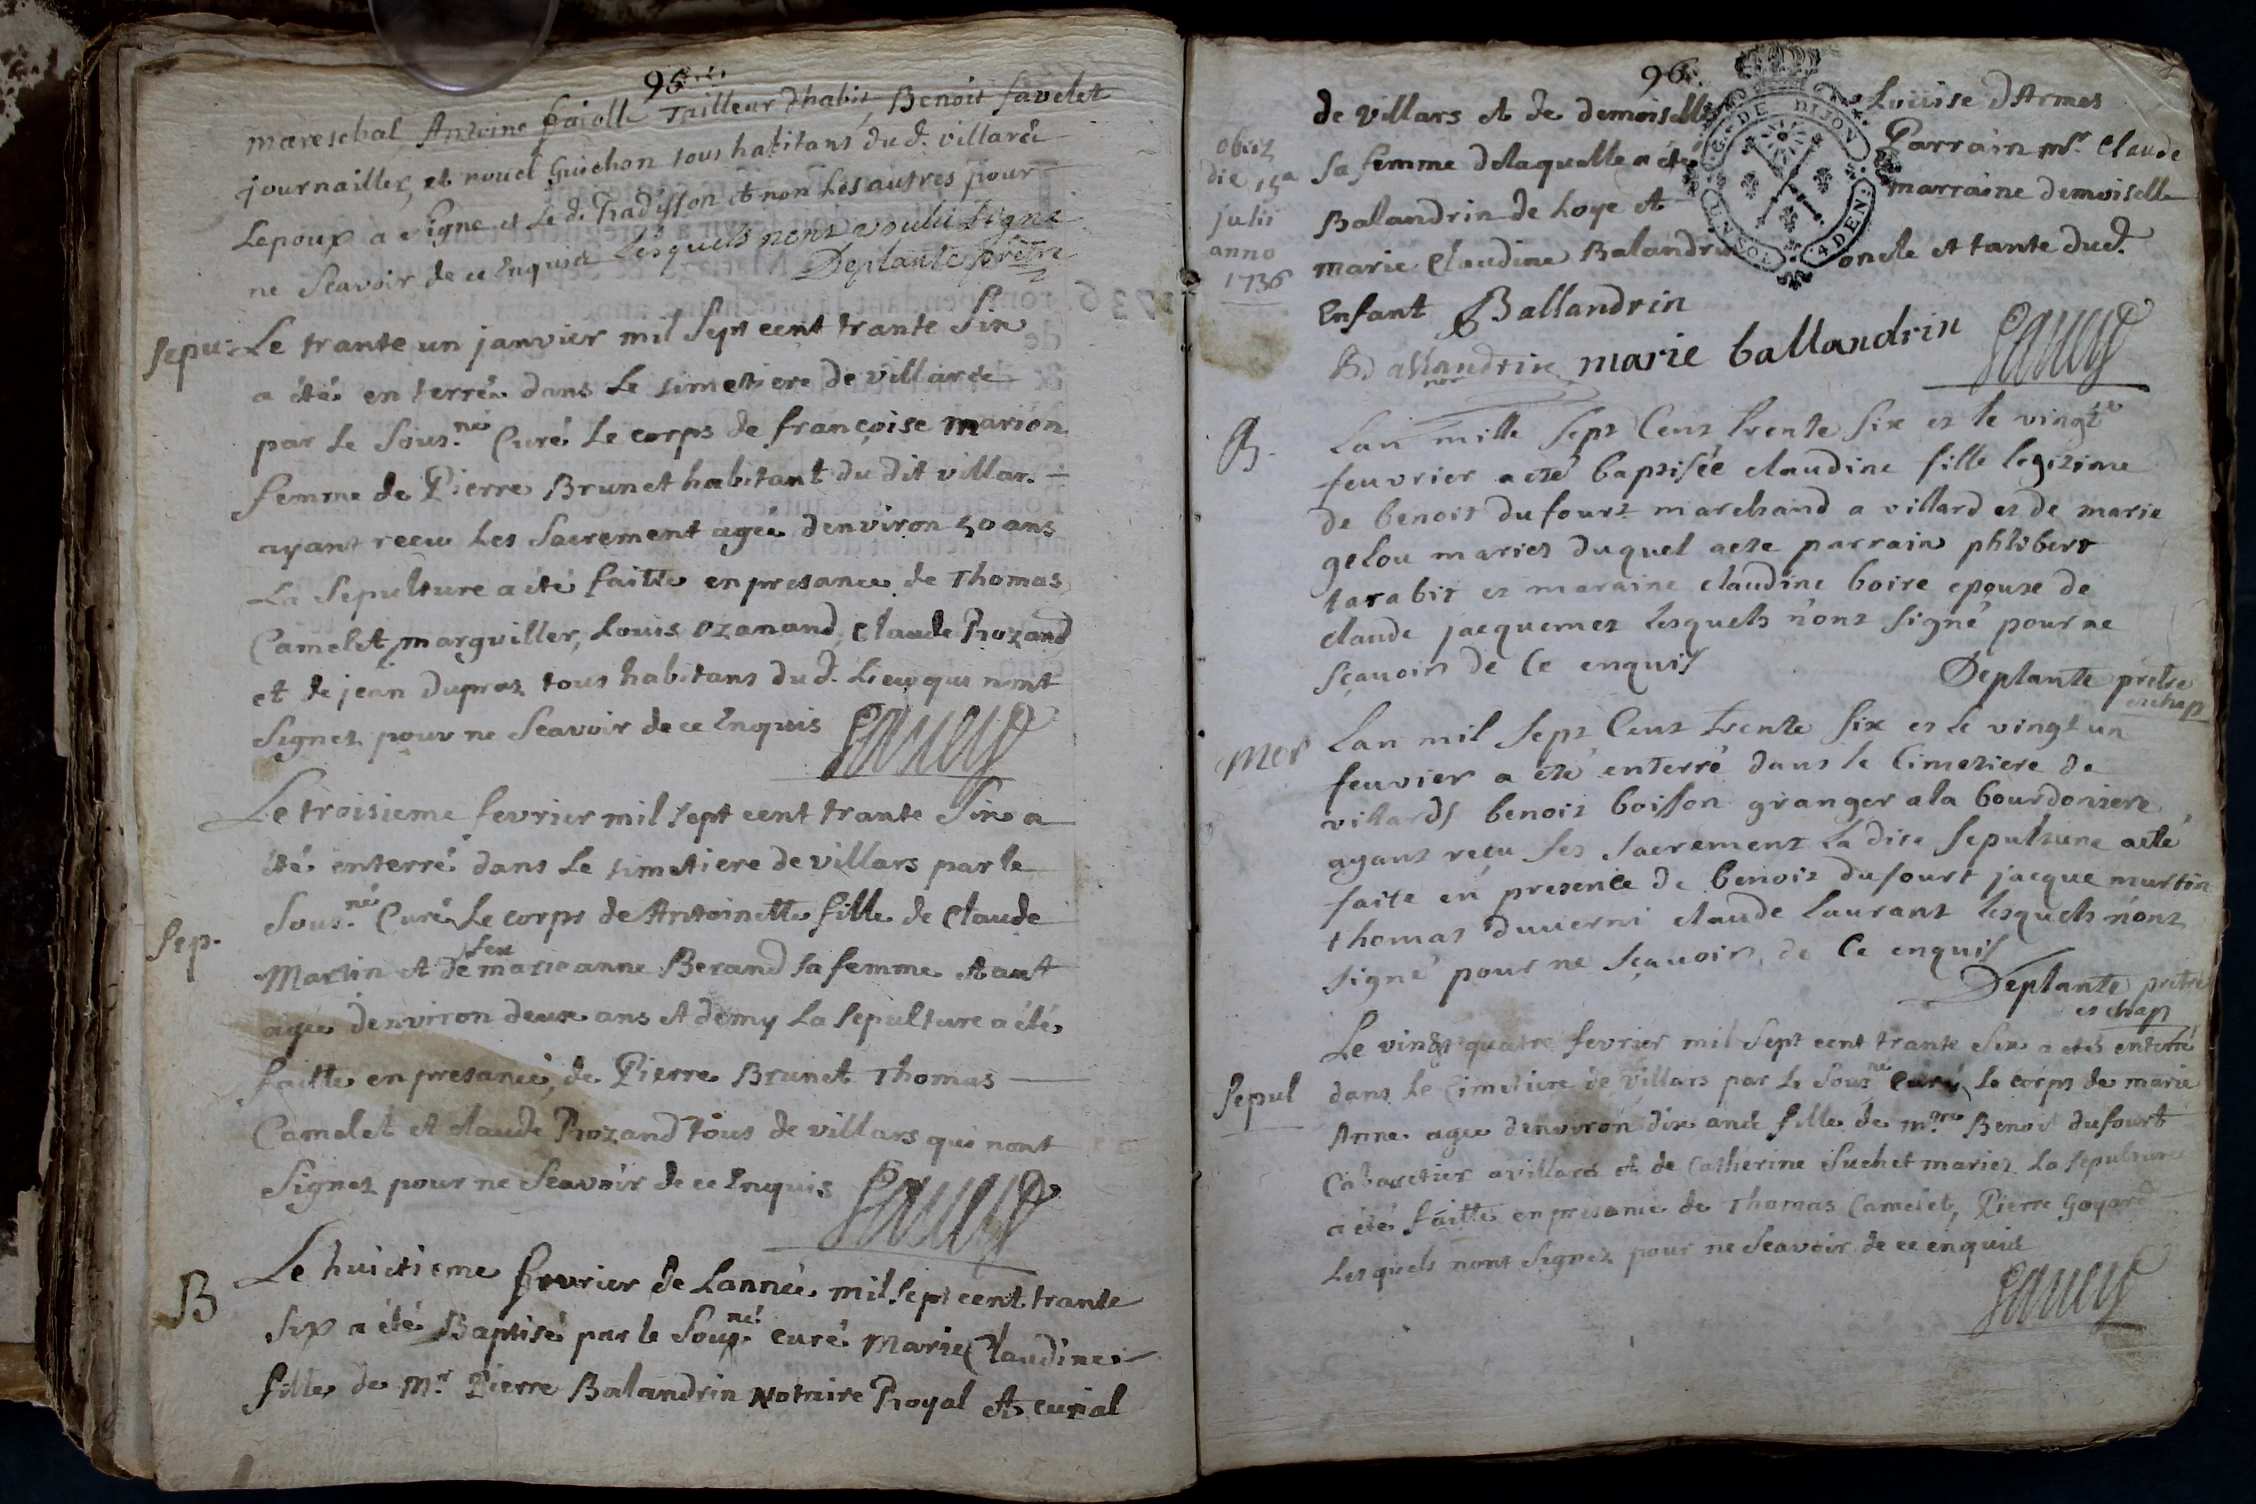 95
mareschal, Antoine faiolle Tailleur d'habit, Benoit favelet
journailler, et nouel Guichon tous habitans du d. villard
Lepoux a signe et Le d. Tradisson et non Les autres pour
ne Scavoir de ce Enquis Lesquels nont voulu signe
Deplante pretre
Sepu:
Le trante un janvier mil Sept cent trante Six
a été enterré dans Le simetiere de villard
par Le Sous.né Curé Le corps de françoise Marion
femme de Pierre Brunet habitant du dit villar.
ayant recu Les Sacrement agée denviron 50 ans
La Sepulture a été faitte en presance de Thomas
Camelet, marguiller, Louis Ozanand, Claude Rozand
et de jean Dupras tous habitans du d. Lieu qui nont
signez pour ne Scavoir de ce Enquis
Le troisieme fevrier mil sept cent trante Six a
été enterré dans Le simetiere de villars par le
Sous.né Curé Le corps de Antoinette fille de Claude
Sep.
Martin et de feu marie anne Berand sa femme etant
agée denviron deux ans et demy La sepulture a été
faitte en presance, de Pierre Brunet Thomas
Camelet et claude Rozand tous de villars qui nont
Signez pour ne Scavoir de ce Enquis
B
Le huictieme fevrier de Lannée mil sept cent trante
Six a été Baptisé par le Sous.né curé Marie Claudine
fille de Mr Pierre Balandrin Notaire Royal et curial
96
G. DE DIJON
UN SOL 4 DEN.
de villars et de demoiselle Louise d'Armes
sa femme de laquelle a été Parrain Mr. Claude
Balandrin de Loye et marraine demoiselle
marie Claudine Balandrin oncle et tante dud.
Enfant
obiit
die 15a
julii
anno
1736
Ballandrin
Ballandrin marie ballandrin
B.
Lan mille Sept Cent trente six et le vingt
feuvrier a eté baptisée claudine fille legitime
de benoit dufourt marchand a villard et de marie
gelou mariez duquel a eté parrain philibert
tarabit et maraine claudine boire epouse de
claude jacquemet lesquels n'ont signé pour ne
sçavoir de Ce enquis
Deplante pretre
et chap
Mor
Lan mil sept Cent trente six et le vingt un
feuvier a eté enterré dans le Cimetiere de
villards benoit boisson granger a la bourdoniere
ayant reçu ses sacrement La dite sepulture a eté
faite en presence de benoit dufourt jacque murtin
thomas duverni claude laurant lesquels n'ont
signé pour ne sçavoir, de Ce enquis
Deplante pretre
et chap
Sepul
Le vingt quatre fevrier mil sept cent trante Six a eté enterré
dans Le Cimetiere de villars par Le Sous.né Curé Le corps de marie
Anne agée denviron dix ans fille de m.re Benoit dufourt
Cabaretier a villars et de Catherine Suchet mariez La sepulture
a été faitte en presance de Thomas Camelet, Pierre Goyard
Lesquels nont signez pour ne Scavoir de ce enquis